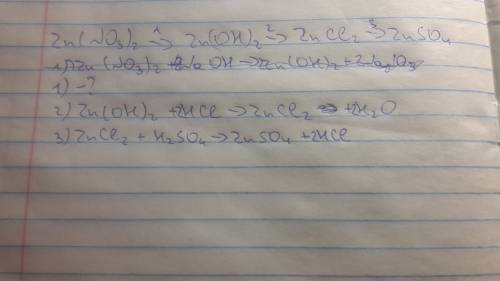 Zn(NO₃)₂ →¹ Zn(OH)₂ →² ZnCl₂ →³ ZnSO₄
1) Zn(NO₃)₂ + 2NaOH → Zn(OH)₂ + 2NaNO₃
1) - ?
2) Zn(OH)₂ + 2HCl → ZnCl₂ + 2H₂O
3) ZnCl₂ + H₂SO₄ → ZnSO₄ + 2HCl